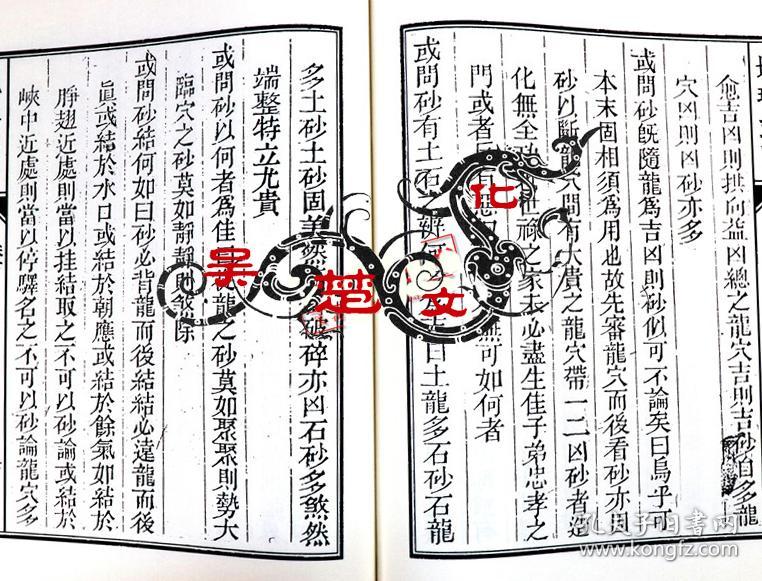 愈吉凶則拱向益凶總之龍穴吉則吉砂自多龍
穴凶則凶砂亦多
或問砂旣隨龍爲吉凶則砂似可不論矣曰烏乎可
本末固相須爲用也故先審龍穴而後看砂亦用
砂以斷龍穴間有大貴之龍穴帶一二凶砂者造
化無全 世祿之家未必盡生佳子弟忠孝之
門或者 有惡 無可如何者
或問砂有土石之辨 曰土龍多石砂石龍
多土砂土砂固美然 破碎亦凶石砂多煞然
端整特立尤貴
或問砂以何者爲佳曰 龍之砂莫如聚聚則勢大
臨穴之砂莫如靜靜則煞除
或問砂結何如曰砂必背龍而後結結必遠龍而後
眞或結於水口或結於朝應或結於餘氣如結於
脝翅近處則當以挂結取之不可以砂論或結於
峽中近處則當以停驛名之不可以砂論龍穴多
吳楚文化
孔夫子旧书网
www.kongfz.com